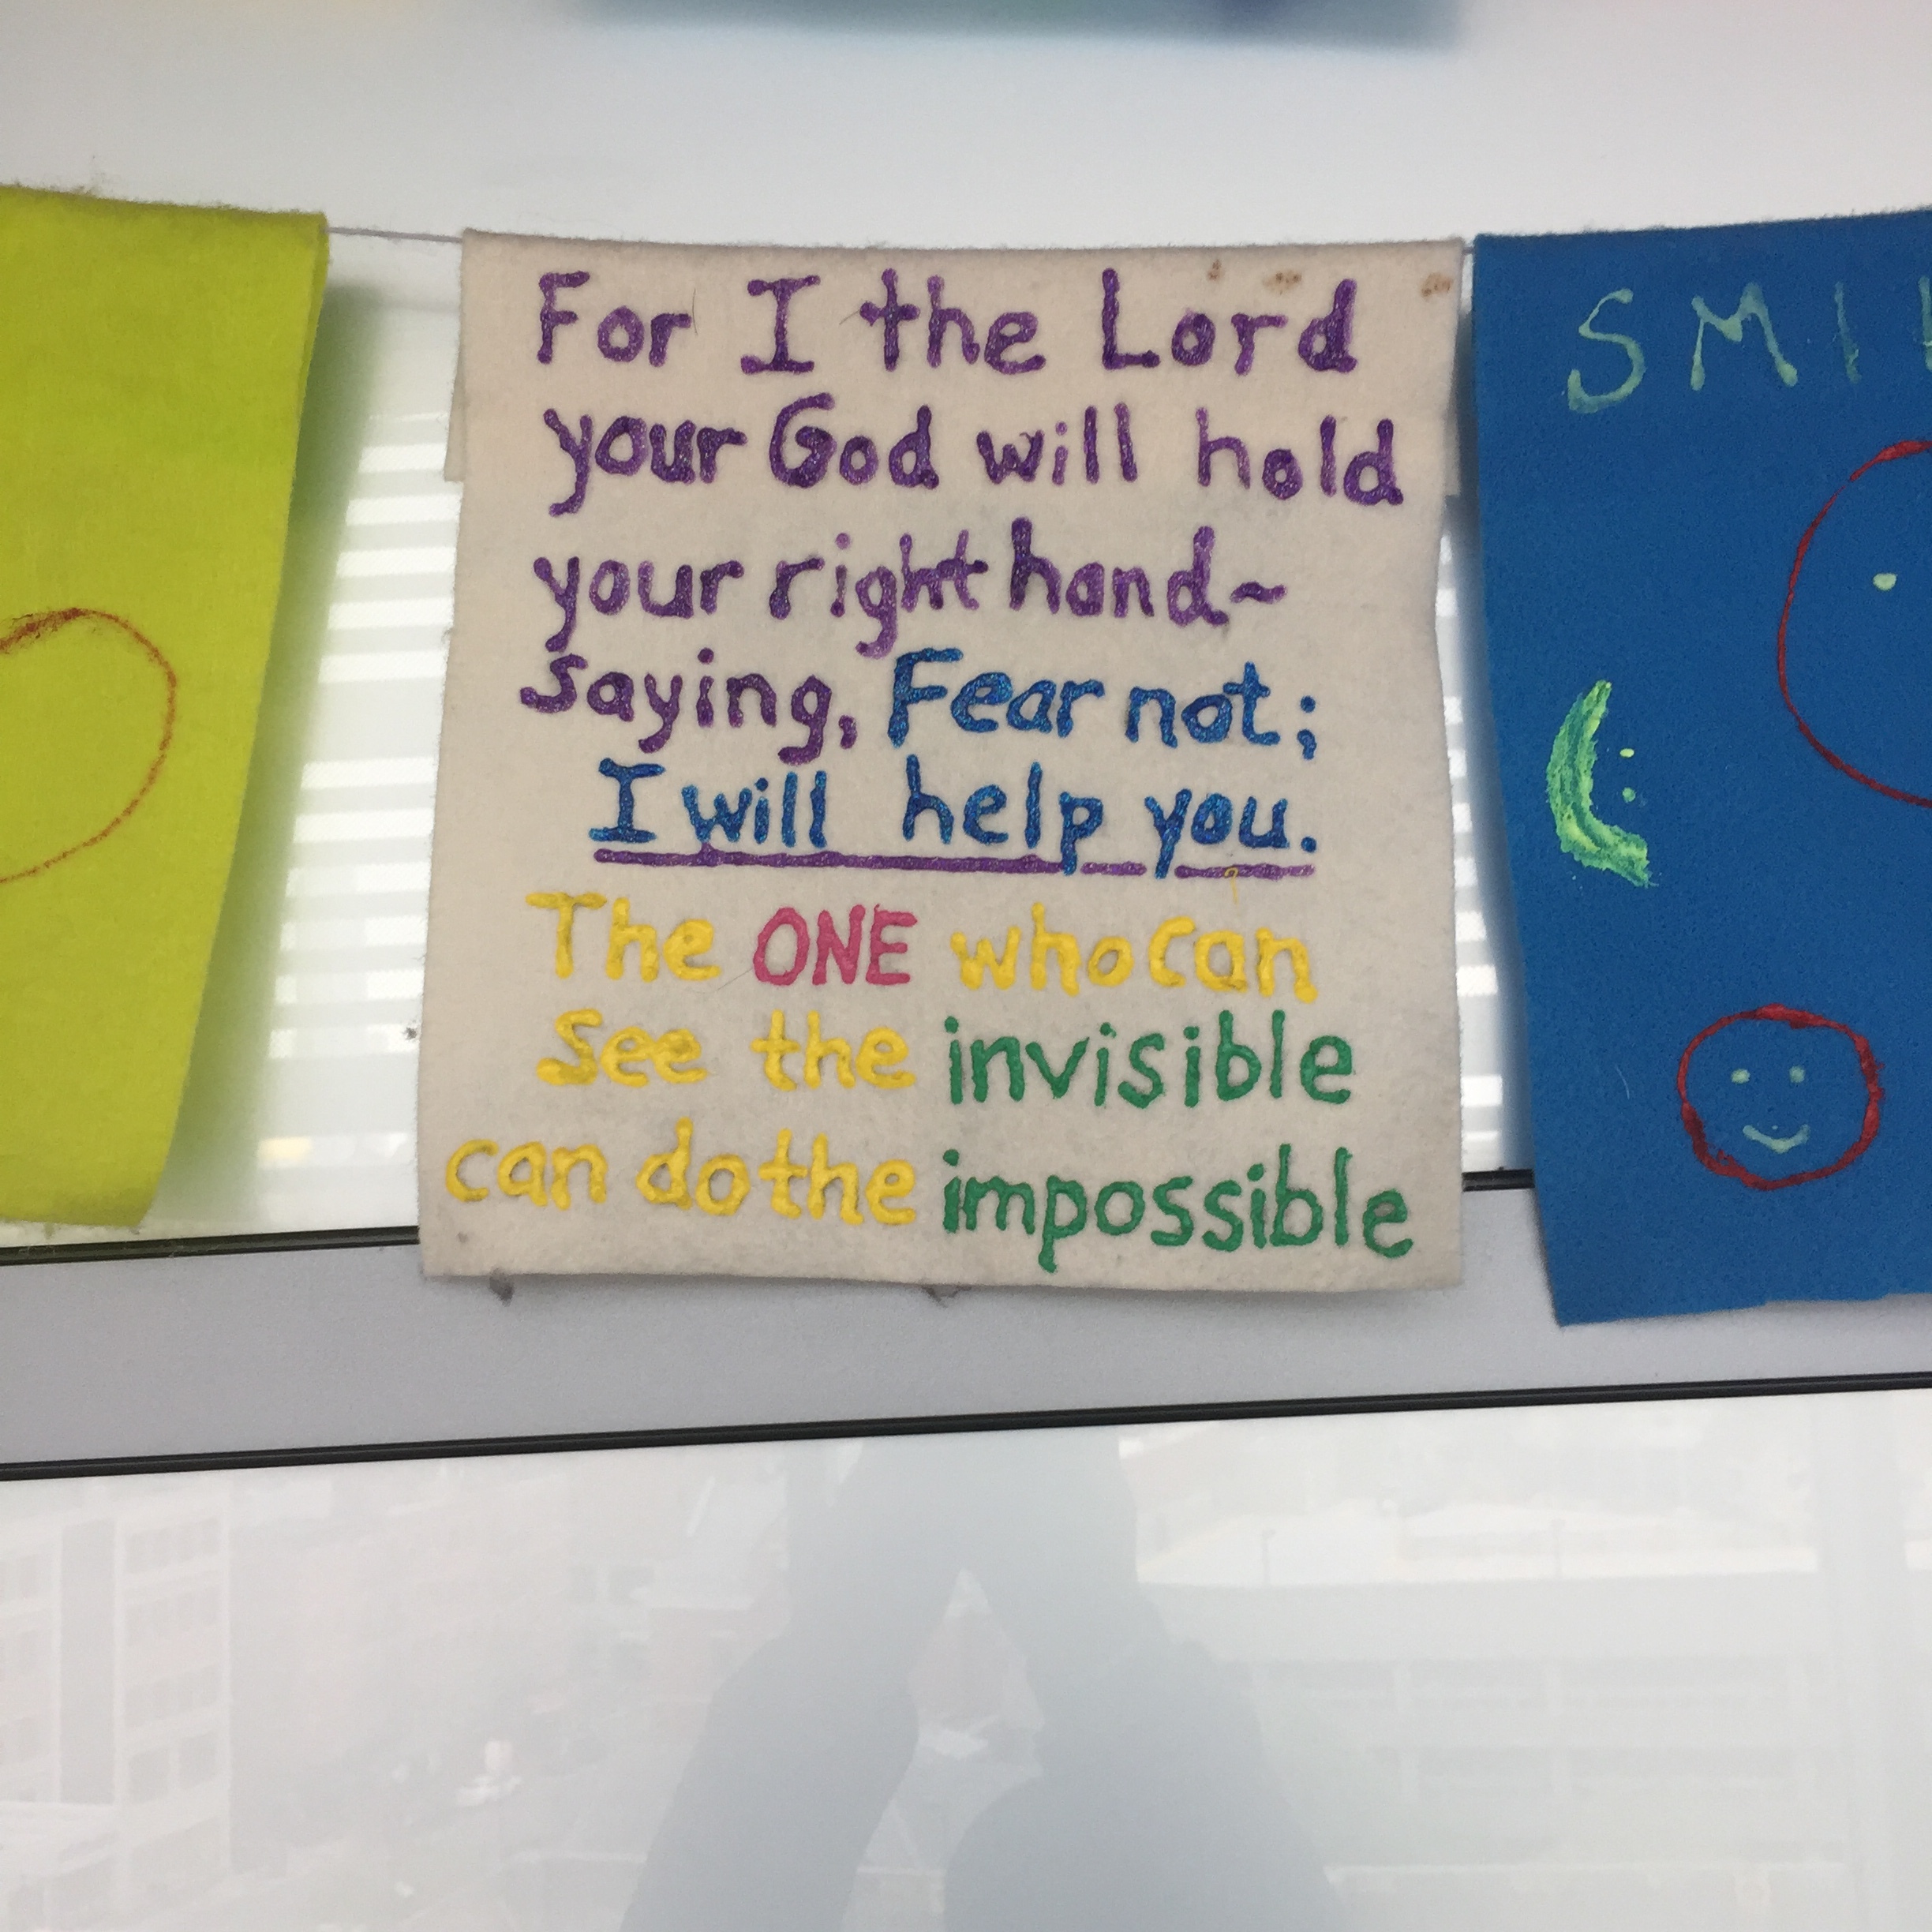 For I the Lord
your God will hold
your right hand~
saying, Fear not;
I will help you.
The ONE who can
See the invisible
can do the impossible